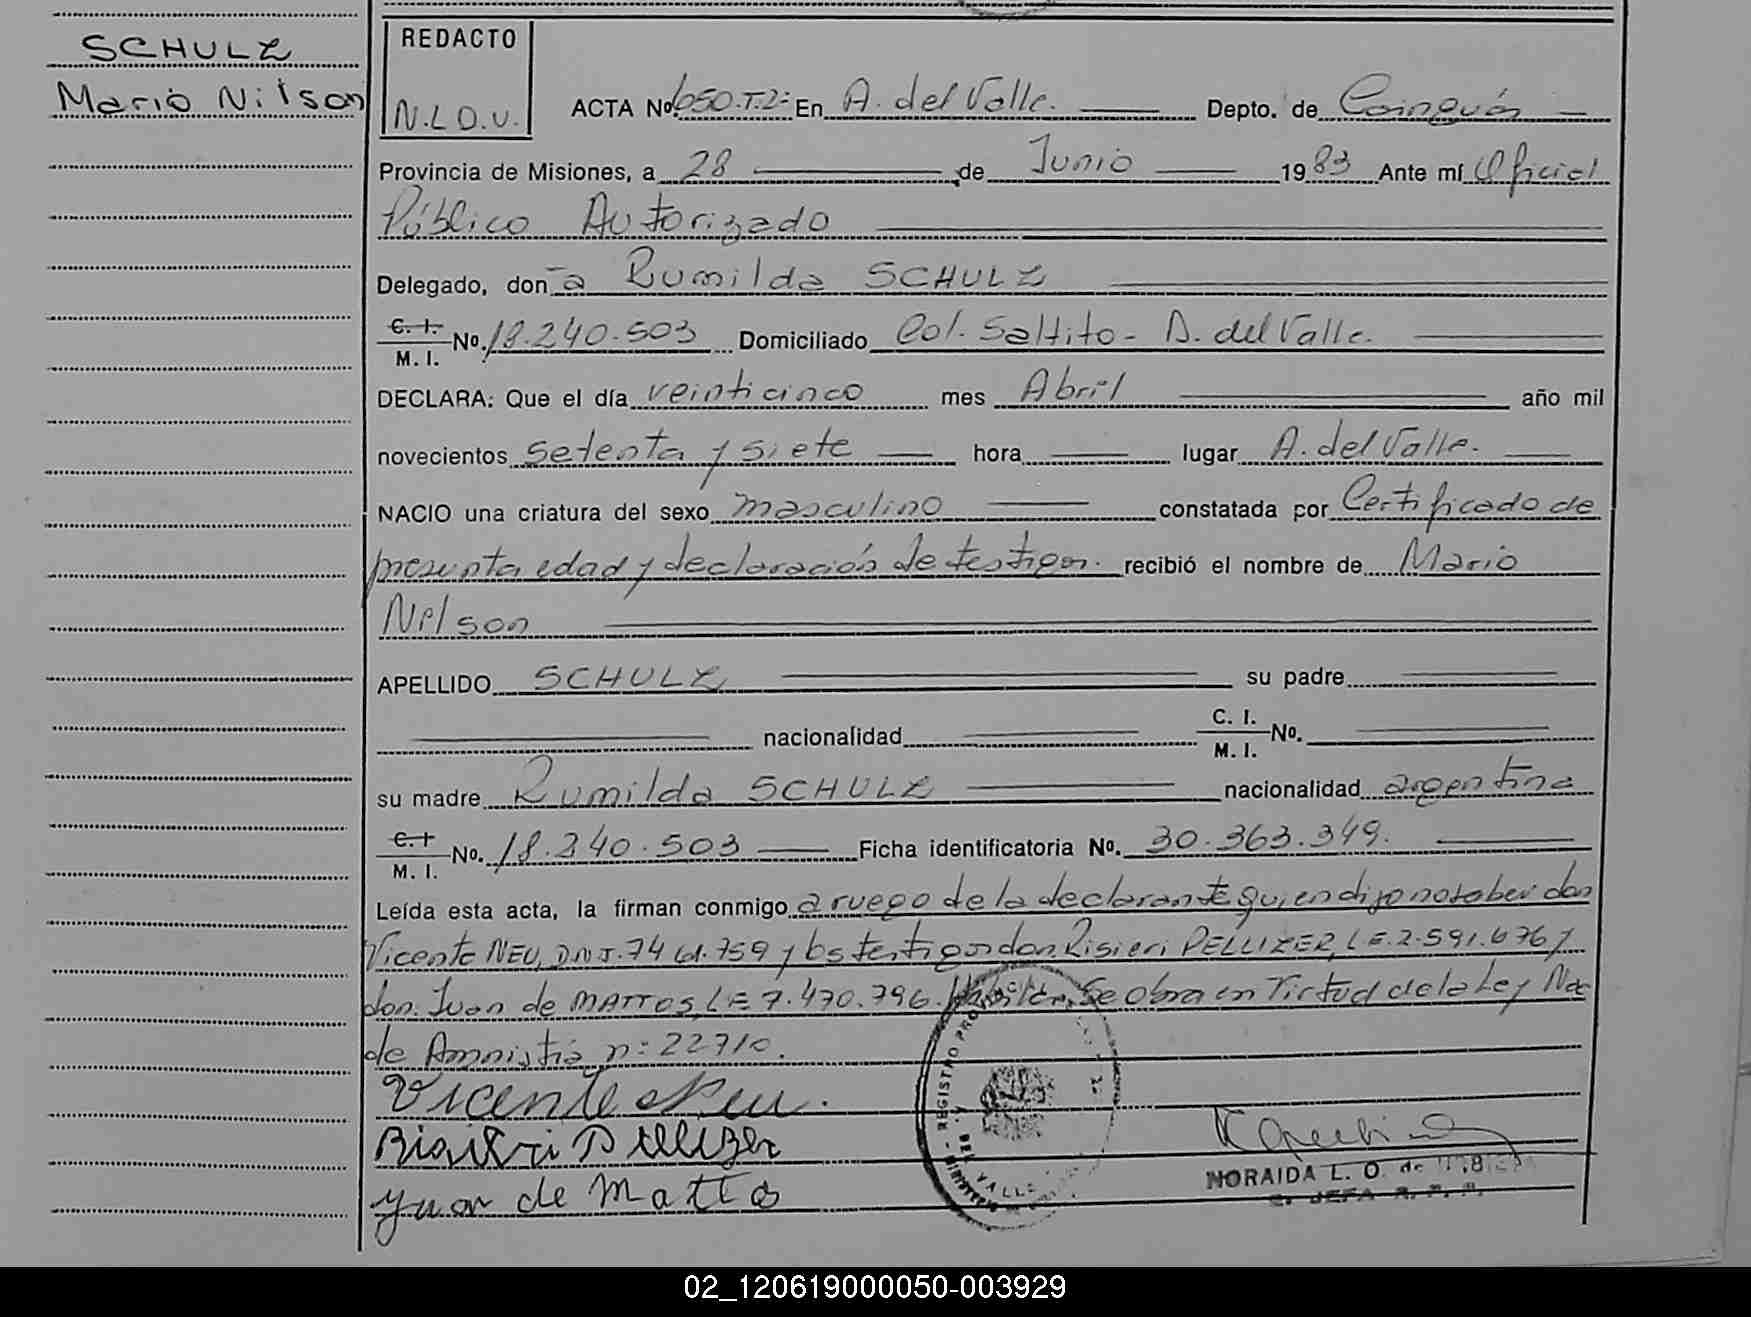 SCHULZ
Mario Nilson
REDACTO
N.L.D.U.
ACTA Nº 650.T.2º En A. del Valle. Depto. de Cainguás
Provincia de Misiones, a 28 de Junio 1983 Ante mí Oficial
Público Autorizado
Delegado, don a Rumilda SCHULZ
C. I. M. I. Nº. 18.240.503 Domiciliado Col. Saltito - A. del Valle.
DECLARA: Que el día veinticinco mes Abril año mil
novecientos setenta y siete hora lugar A. del Valle.
NACIO una criatura del sexo masculino constatada por Certificado de
presunta edad y declaración de testigos. recibió el nombre de Mario
Nelson
APELLIDO SCHULZ su padre
nacionalidad C. I. M. I. Nº.
su madre Rumilda SCHULZ nacionalidad argentina
C. I. M. I. Nº. 18.240.503 Ficha identificatoria Nº. 30.363.349.
Leída esta acta, la firman conmigo a ruego de la declarante quien dijo no saber don
Vicente NEU, D.N.I. 7.461.759 y los testigos don Risieri PELLIZER, L.E. 2.591.676 y
don Juan de MATTOS, L E 7.470.796. Se obra en Virtud de la Ley Nac
de Amnistía nº 22710.
Vicente Neu.
Risieri Pellizer
Juan de Mattos
REGISTRO PROV
DEL VALLE
MINISTERIO
NORAIDA L. O. de
JEFA R. P. P.
02_120619000050-003929